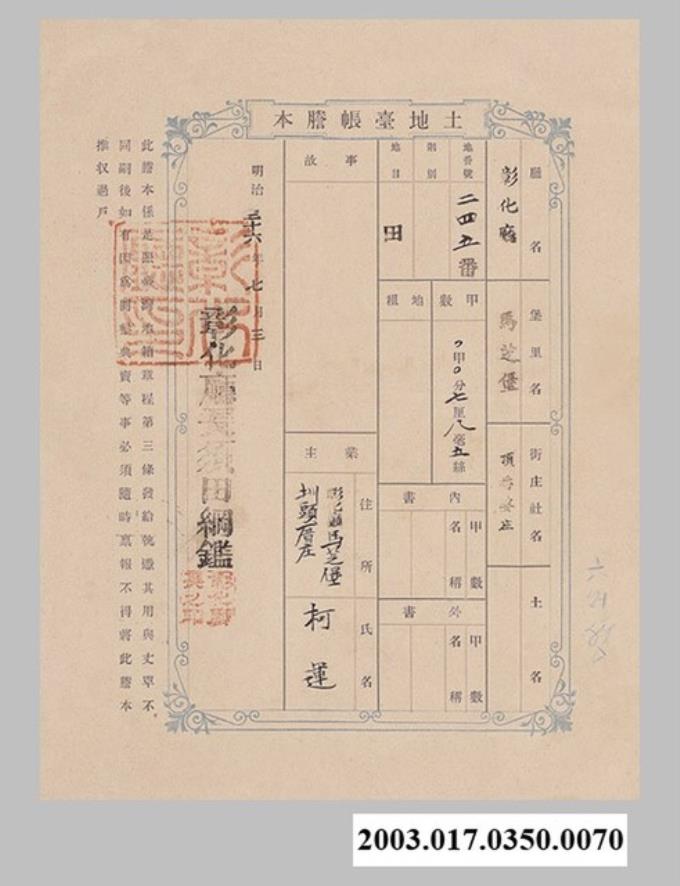 土地臺帳謄本
廳名
彰化廳
堡里名
馬芝堡
街庄社名
土名
地番號
二四五番
則別
地目
田
甲數
甲0分七厘八毫五絲
地租
內書
甲數
名稱
外書
甲數
名稱
事故
業主
住所
彰化廳馬芝堡
圳頭厝庄
氏名
柯運
明治三十六年七月三日
彰化廳長須田綱鑑
此謄本係是照臺灣地籍規程第三條發給號憑其用與丈單不
同嗣後如有因為開墾典賣等事必須隨時稟報不得將此謄本
推收過戶
2003.017.0350.0070